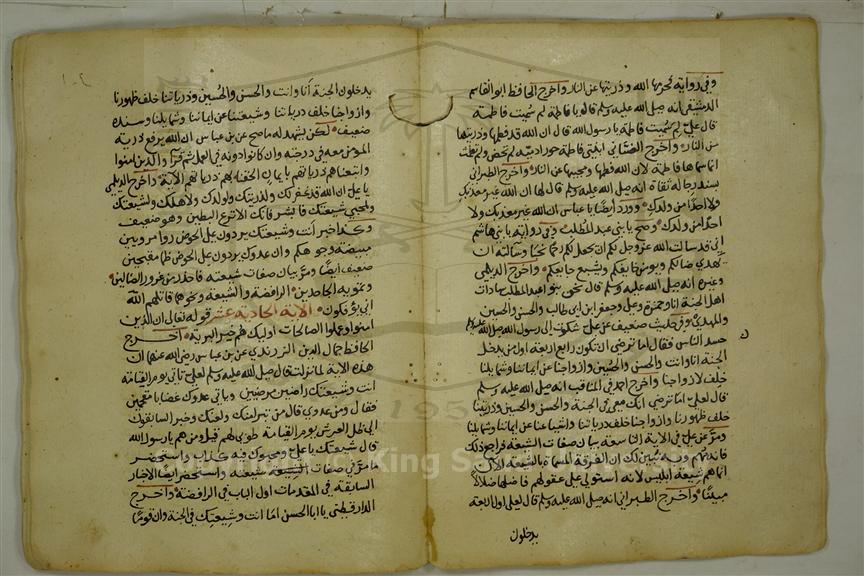 وفي رواية فحرمها الله وذريتها عن النار واخرج الحافظ ابو القاسم
الدمشقي انه صلى الله عليه وسلم قال يا فاطمة لم سميت فاطمة
قال علي لم سميت فاطمة يا رسول الله قال ان الله قد فطمها وذريتها
من النار واخرج النسائي ابنتي فاطمة حوراء ادمية لم تحض ولم تطمث
انما سماها فاطمة لان الله فطمها ومحبيها عن النار واخرج الطبراني
بسند رجاله ثقاة انه صلى الله عليه وسلم قال لها ان الله غير معذبك
ولا احدا من ولدك وورد ايضا يا عباس ان الله غير معذبك ولا
احدا من ولدك وصح يا بني عبد المطلب وفي رواية يا بني هاشم
اني قد سالت الله عز وجل لكم ان يجعلكم رحما نجبا وسالته ان
يهدي ضالكم ويومن خايفكم ويشبع جايعكم واخرج الديلمي
وغيره انه صلى الله عليه وسلم قال نحن بنو عبد المطلب سادات
اهل الجنة انا وحمزة وعلي وجعفر ابن ابي طالب والحسن والحسين
والمهدي وفي حديث ضعيف عن علي شكوت الى رسول الله صلى الله عليه وسلم
حسد الناس فقال اما ترضى ان تكون رابع اربعة اول من يدخل
الجنة انا وانت والحسن والحسين وازواجنا عن ايماننا وشمايلنا
خلف لازواجنا واخرج احمد في المناقب انه صلى الله عليه وسلم
قال لعلي اما ترضى انك معي في الجنة والحسن والحسين وذريتنا
خلف ظهورنا وازواجنا خلف ذرياتنا واشياعنا عن ايماننا وشمايلنا
ومر عن علي في الاية التاسعة بيان صفات الشيعة فراجع ذلك
فانه مهم وبه تبين لك ان الفرقة المسماة بالشيعة الان
انما هم شيعة ابليس لانه استولى على عقولهم فاضلها ضلالا
مبينا واخرج الطبراني انه صلى الله عليه وسلم قال لعلي اول اربعة
يدخلون
يدخلون الجنة أنا وانت والحسن والحسين وذرياتنا خلف ظهورنا
وازواجنا خلف ذرياتنا وشيعتنا عن ايماننا وشمايلنا وسنده
ضعيف لكن يشهد له ما صح عن بن عباس ان الله يرفع ذرية
المومن معه في درجته وان كانوا دونه في العمل ثم قرأ والذين امنوا
واتبعناهم ذرياتهم بايمان الحقنا بهم ذرياتهم الاية واخرج الديلمي
يا علي ان الله قد غفر لك ولذريتك ولولدك ولاهلك ولشيعتك
ولمحبي شيعتك فابشر فانك الانزع البطين وهو ضعيف
وكذا خبر انت وشيعتك يردون على الحوض رواء مرويين
مبيضة وجوهكم وان عدوك يردون على الحوض ظما مقمحين
ضعيف ايضا ومر بيان صفات شيعته فاحذر من غرور الضالين
وتمويه الجاحدين الرافضة والشيعة ونحوهما قاتلهم الله
انى يؤفكون الاية الحادية عشر قوله تعالى ان الذين
امنوا وعملوا الصالحات اوليك هم خير البرية اخرج
الحافظ جمال الدين الزرندي عن بن عباس رضي الله عنهما ان
هذه الاية لما نزلت قال صلى الله عليه وسلم لعلي تاتي يوم القيامة
انت وشيعتك راضين مرضيين وياتي عدوك غضابا مقمحين
فقال ومن عدوي قال من تبرأ منك ولعنك وخبر السابقون
الى ظل العرش يوم القيامة طوبى لهم قيل ومن هم يا رسول الله
قال شيعتك يا علي ومحبوك فيه كذاب واستحضر
ما مر في صفات الشيعة شيعته واستحضر ايضا الاخبار
السابقة في المقدمات اول الباب في الرافضة واخرج
الدارقطني يا ابا الحسن اما انت وشيعتك في الجنة وان قوما